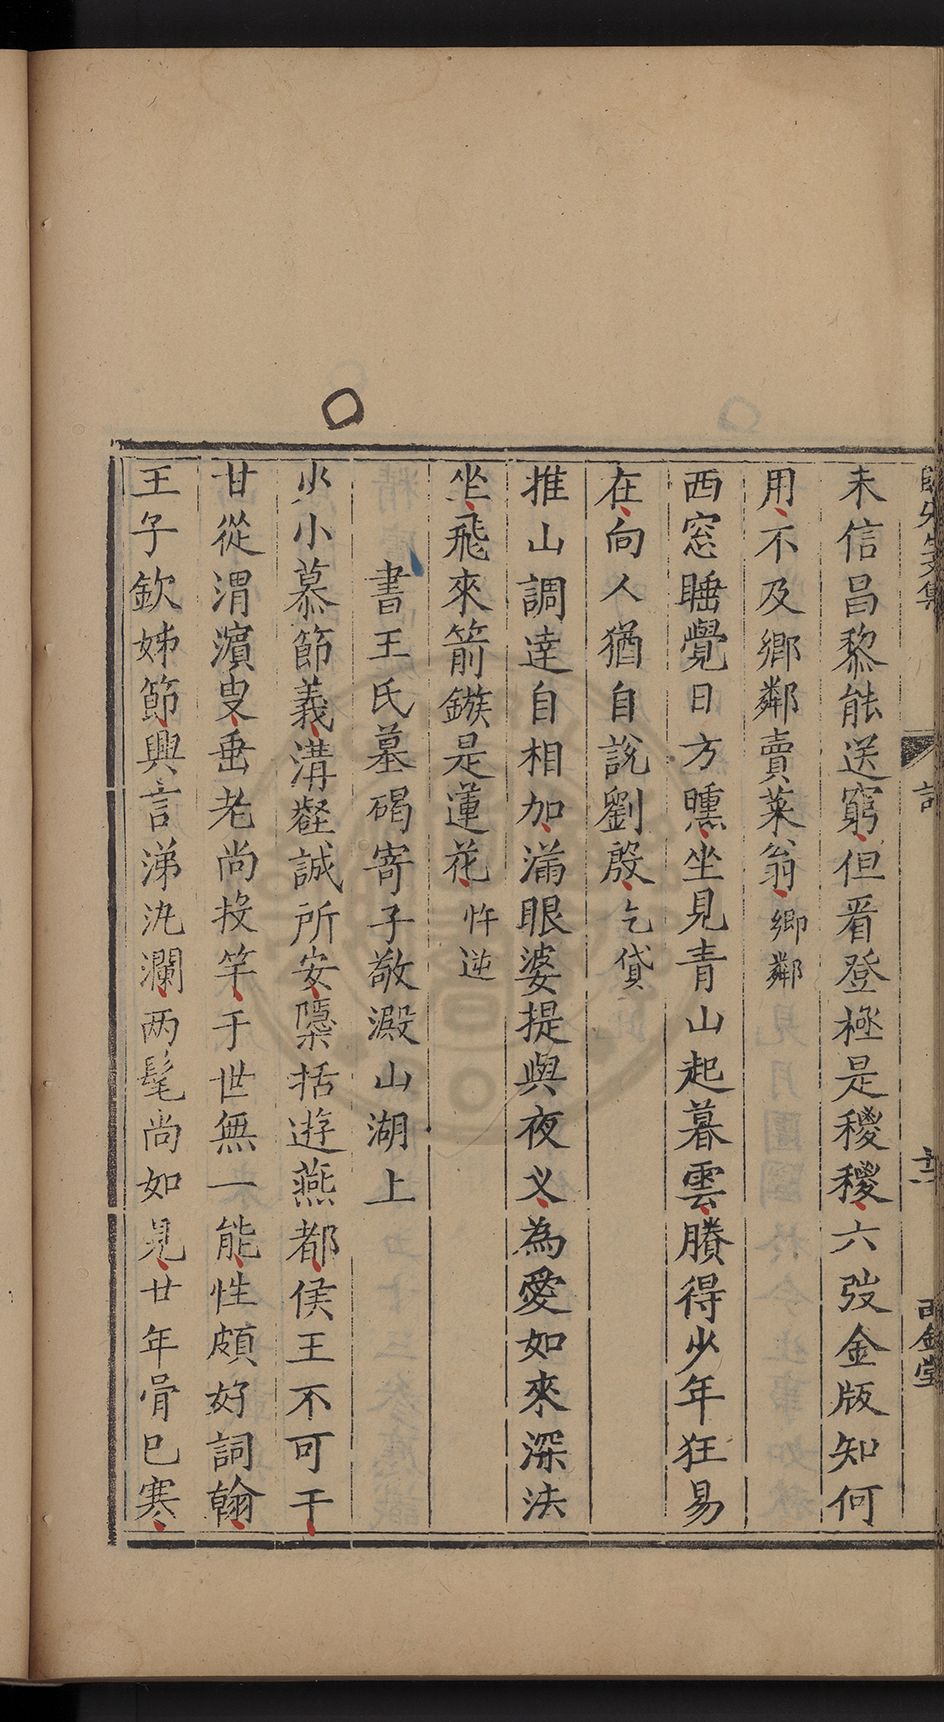 未信昌黎能送窮但看登極是稷稷六弢金版知何
用不及鄉鄰賣菜翁鄉鄰
西窓睡覺日方曛坐見青山起暮雲賸得少年狂易
在向人猶自說劉殷乞貸
推山調達自相加滿眼婆提與夜义為愛如來深法
坐飛來箭鏃是蓮花忤逆
書王氏墓碣寄子敬澱山湖上
少小慕節義溝壑誠所安隱括遊燕都侯王不可干
甘從渭濵叟垂老尚投竿于世無一能性頗好詞翰
王子欽姊節興言涕汍瀾两髦尚如見廿年骨已寒